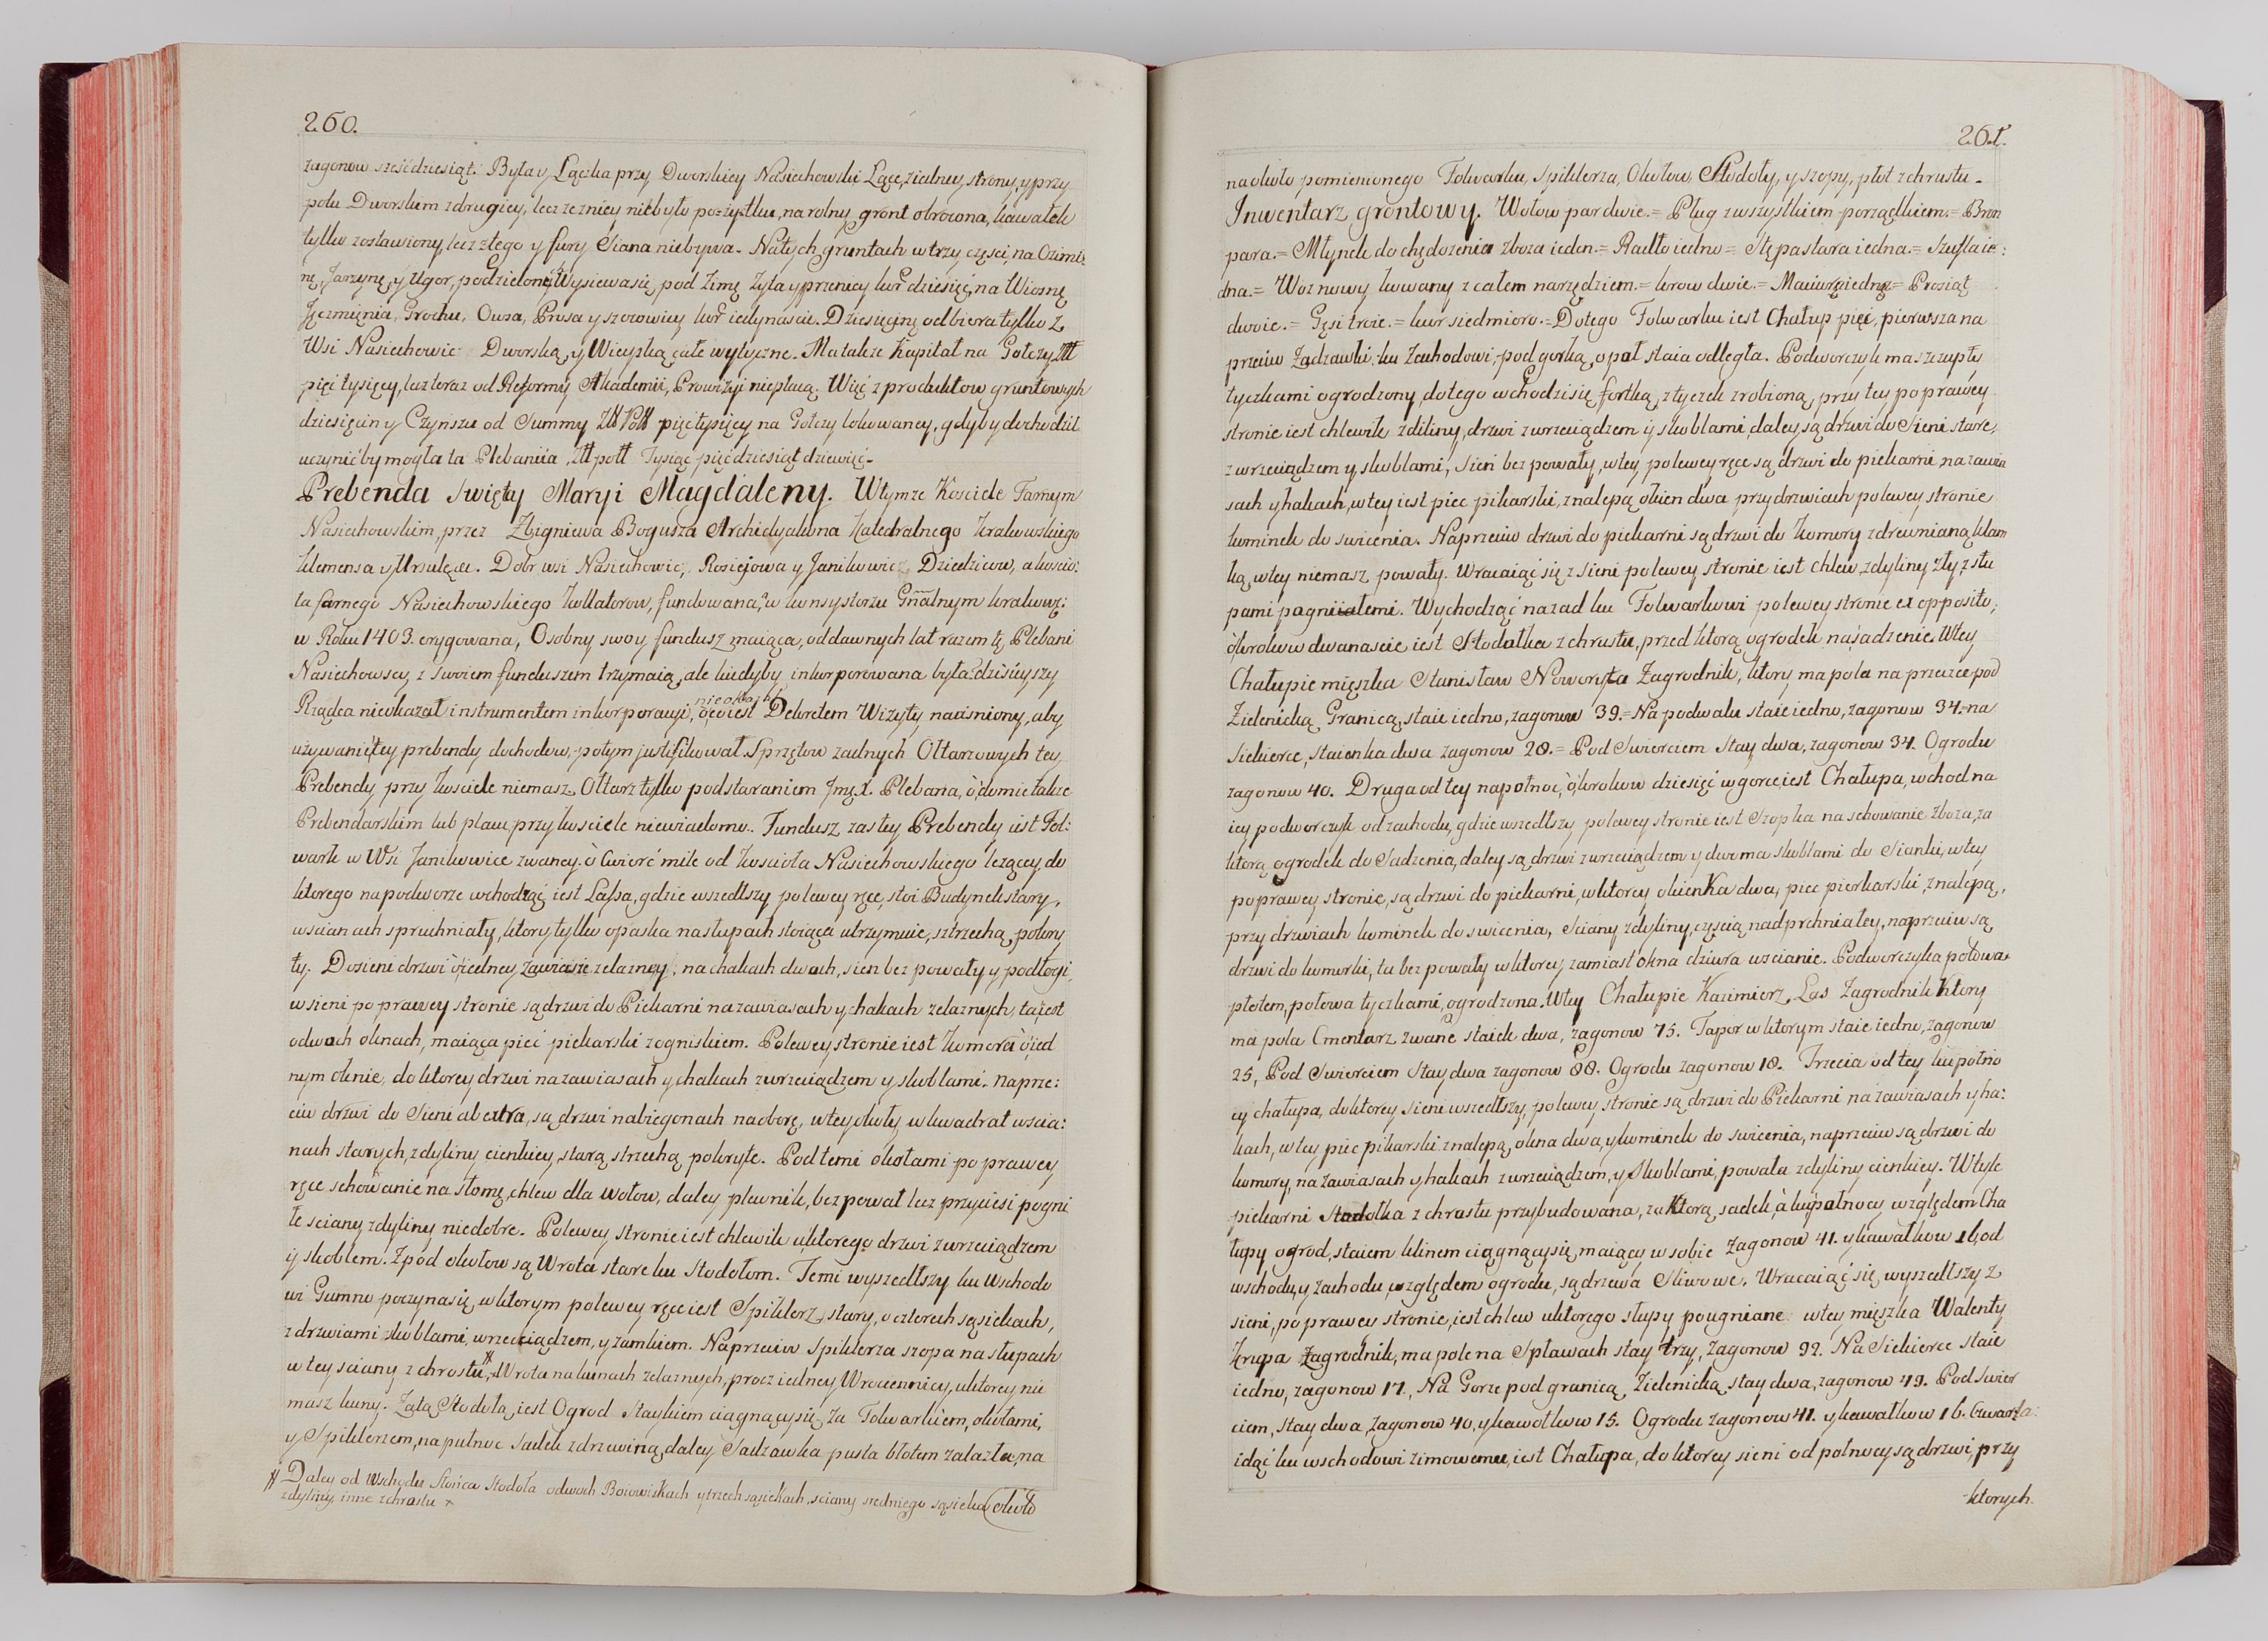 260.
zagonow sześćdziesiąt. Była y Łączka przy Dworskiey Nasiechowski Łące, z iedney strony, y przy
polu Dworskim z drugiey, lecz ze zniey niebyło pożytku, na rolny gront obrocona, kawałek
tylko zostawiony, lecz ztego y fury Siana niebywa. Natych gruntach w trzy części, na Ozimi:
nę, Jarzynę, y Ugor, podzielonych Wysiewa się, pod Zimę Żyta y pszenicy kor dziesięć, na Wiosnę
Jęczmienia, Grochu, Owsa, Prosa y soczowicy kor iedynascie. Dziesięcinę odbiera tylko z
Wsi Nasiechowic Dworską, y Wieyską całe wytyczne. Ma także Kapitał na Gołczy Złł
pięć tysięcy, lecz teraz od Reformy Akademii, Prowizyi niepłacą. Więc z produktow gruntowych
dziesięcin y Czynszu od Summy Złł Poll pięć tysięcy na Gołczy lokowaney, gdyby dochodził
uczynić by mogła ta Plebaniia, Złł poll Tysiąc pięćdziesiąt dziewięć.
Prebenda Swięty Maryi Magdaleny. Wtymze Kosciele Farnym
Nasiechowskim, przez Zbigniewa Bogusza Archidyakona Katedralnego Krakowskiego
Klemensa y Mrulęę. Dobr wsi Nasiechowic, Rosiejowa y Janikowic Dziedzicow, a koscio:
ła farnego Nasiechowskiego Kollatorow, fundowana, a w konsystorzu Gñalnym krakows:
w Roku 1403. erygowana, Osobny swoy fundusz maiąca, od dawnych lat razem tę Plebani
Nasiechowscy z swoiem funduszem trzymaią, ale kiedyby inkorporowana była dzisieyszy
Rządca nieukazał instrumentem inkorporacyi, oco iest Dekretem Wizyty nacisniony, aby
używanie tey prebendy dochodow, potym justifikował. Sprzętow zadnych Ołtarzowych tey
Prebendy przy Kosciele niemasz, Ołtarz tylko pod staraniem Jmę X. Plebana, ò domie także
Prebendarskim lub placu przy kosciele niewiadomo. Fundusz zas tey Prebendy iest Fol:
wark w Wsi Janikowice zwaney. ò Cwierć mile od Kosciola Nasiechowskiego leżącey, do
ktorego na podworze wchodząc iest Łassa, gdzie wszedłszy po lewey ręce, stoi Budynek stary,
w scianach spruchniały, ktory tylko opaska na słupach stoiąca utrzymuie, sztrzechą pokry
ty. Do sieni drzwi o iedney zawiasie zelazney, na chakach dwoch, sien bez powały y podłogi
w sieni po prawey stronie są drzwi do Piekarni na zawiasach y hakach zelaznych, ta iest
o dwoch oknach, maiąca piec piekarski z ogniskiem. Po lewey stronie iest Komora ò ied
nym oknie, do ktorey drzwi na zawiasach y chakach z wrzeciądzem y skoblami. Naprze:
ciw drzwi do Sieni ab extra, są drzwi na biegonach na oborę, w tey okoły w kwadrat w scia:
nach starych, z dyliny cienkiey, starą strzechą pokryte. Pod temi okołami po prawey
ręce schowanie na słomę, chlew dla wołow, daley plewnik, bez pował lecz przyciesi pogni
łe sciany z dyliny niedobre. Po lewey stronie iest chlewik ù ktorego drzwi z wrzeciądzem
y skoblem. Zpod okołow są Wrota stare ku Stodołom. Temi wyszedłszy ku Wschodo
wi Gumno poczyna się, w ktorym po lewey ręce iest Spiklerz stary, o czterech sąsiekach,
z drzwiami skoblami, wrzeciądzem, y zamkiem. Naprzeciw Spiklerza szopa na słupach
w tey sciany z chrostu, Wrota na kunach zelaznych, procz iedney Wrociennicy, u ktorey nie
masz kuny. Zatą Stodołą iest Ogrod Staykiem ciągnący się za Folwarkiem, okołami,
y Spiklerzem, na pułnoc Sadek z drzewiną, daley Sadzawka pusta błotem zalazła, na
Daley od Wschodu Słońca Stodoła o dwoch Boiowiskach y trzech sąsiekach, sciany sredniego sąsieka
z dyliny, inne z chrostu
około
261.
na około pomienionego Folwarku, Spiklerza, Okołow, Stodoły, y szopy, płot z chrustu.
Inwentarz grontowy. Wołow par dwie.= Pług z wszystkiem porządkiem.= Bron
para.= Młynek do chędozenia zboza ieden.= Radło iedno= Stępa stara iedna.= Szufla ie:
dna.= Woz nowy kowany z całem narzędziem.= krow dwie.= Maciurę iednę= Prosiąt
dwoie.= Gęsi troie.= kur siedmioro.= Do tego Folwarku iest Chałup pięć, pierwsza na
przeciw Zadzawki, ku Zachodowi, pod gorką, o poł staia odległa. Podworczyk ma szczupły
tyczkami ogrodzony, do tego wchodzi się fortką, z tyczek zrobioną, przy tey po prawey
stronie iest chlewik z diliny, drzwi z wrzeciądzem y skoblami, daley są drzwi do Sieni stare,
z wrzeciądzem y skoblami, sień bez powały, w tey po lewey ręce są drzwi do piekarni na zawia
sach y hakach, w tey iest piec pikarski, z nalepą, okien dwa, przy drzwiach po lewey stronie
kominek do swicenia. Naprzeciw drzwi do piekarni są drzwi do Komory z drewnianą klam
ką, w tey niemasz powały. Wracaiąc się z sieni po lewey stronie iest chlew z dyliny zły, z słu
pami pagniiałemi. Wychodząc nazad ku Folwarkowi po lewey stronie ex opposito,
ò krokow dwanascie iest Stodołka z chrustu, przed ktorą ogrodek na sadzenie. W tey
Chałupie mięszka Stanisław Noworyta Zagrodnik, ktory ma pola na przecze pod
Zielenicką Granicą, staie iedno, zagonow 39.= Na podwalu staie iedno, zagonow 34.= na
Siekierce, staienka dwa zagonow 28.= Pod Swierciem Stay dwa, zagonow 34. Ogrodu
zagonow 40. Druga od tey na połnoc, ò krokow dziesięć w gorce iest Chałupa, wchod na
iey podworczyk od zachodu, gdzie wszedłszy po lewey stronie iest Szopka na schowanie zboza, za
ktorą ogrodek do Sadzenia, daley są drzwi z wrzeciądzem y dwoma skoblami do Sionki, w tey
po prawey stronie, są drzwi do piekarni, w ktorey okienka dwa, piec piekarski, z nalepą,
przy drzwiach kominek do swicenia, sciany z dyliny, częscią nadprchniałey, naprzeciw są
drzwi do komorki, tu bez powały w ktorey zamiast okna dziura w scianie. Podworczyka połowa
płotem, połowa tyczkami, ogrodzona. W tey Chałupie Kazimierz Las Zagrodnik ktory
ma pola Cmentarz zwane staiek dwa, zagonow 75. Tapor w ktorym staie iedno, zagonow
25, Pod Swierciem Stay dwa zagonow 88. Ogrodu zagonow 18. Trzecia od tey ku połno
cy chałupa, do ktorey Sieni wszedłszy, po lewey stronie są drzwi do Piekarni na zawiasach y ha:
kach, w tey piec pikarski z nalepą, okna dwa, y kominek do swicenia, naprzeciw są drzwi do
komory, na zawiasach y hakach z wrzeciądzem, y skoblami, powała z dyliny cienkiey. W tyle
piekarni Stodołka z chrostu przybudowana, za ktorą sadek, à ku połnocy względem Cha
łupy ogrod, staiem klinem ciągnący się, maiący w sobie zagonow 41. y kawałkow 16, od
wschodu, y zachodu, względem ogrodu, są drzewa Sliwowe. Wracaiąc się, wyszedłszy z
sieni, po prawey stronie, iest chlew u ktorego słupy pougniane w tey mięszka Walenty
Krupa Zagrodnik, ma pole na Spławach stay trzy, zagonow 92. Na Siekierce staie
iedno, zagonow 17., Na Gorze pod granicą Zielenicką stay dwa, zagonow 49. Pod Swier
ciem, stay dwa, zagonow 40, y kawołkow 15. Ogrodu zagonow 41. y kawałkow 16. Czwarta:
idąc ku wschodowi zimowemu, iest Chałupa, do ktorey sieni od połnocy są drzwi, przy
ktorych.